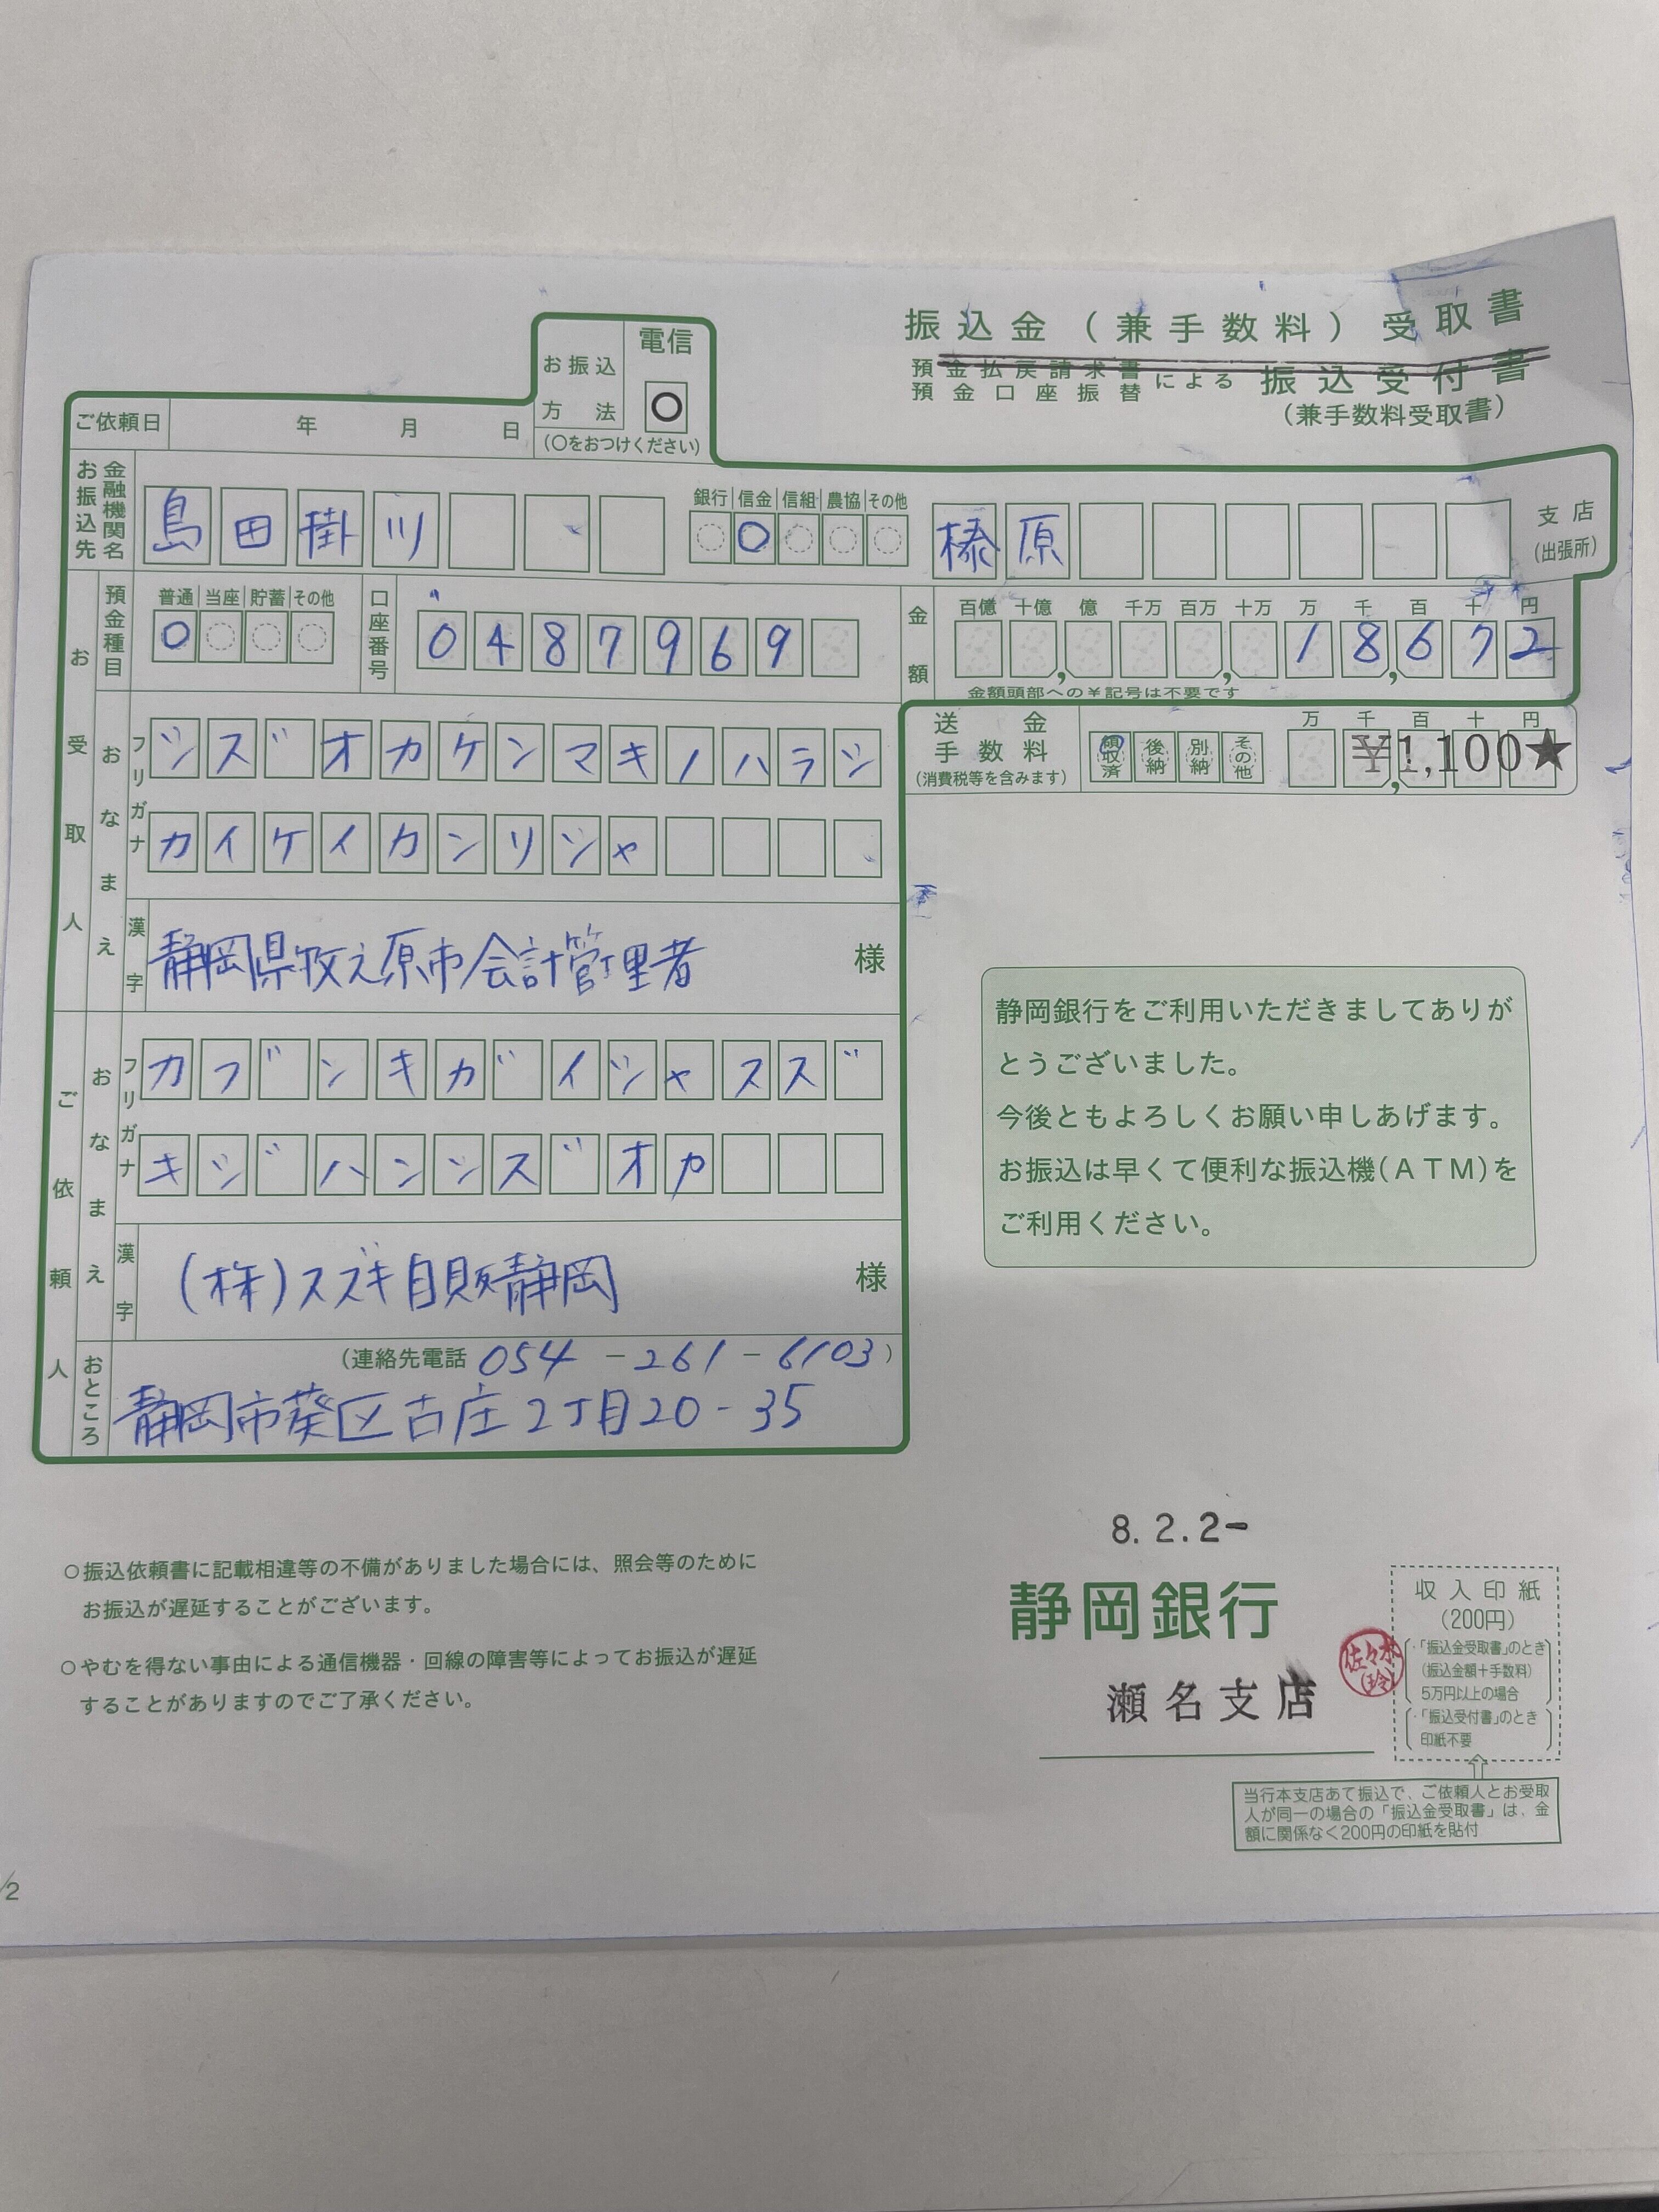 振込金（兼手数料）受取書
預金払戻請求書
預金口座振替
による 振込受付書
（兼手数料受取書）
お振込方法 電信
○
（○をおつけください）
ご依頼日 年 月 日
お振込先 金融機関名 島田掛川 銀行 信金 信組 農協 その他 榛原 支店（出張所）
預金種目 普通 当座 貯蓄 その他 口座番号 0487969
金額 百億 十億 億 千万 百万 十万 万 千 百 十 円
18,672
金額頭部への￥記号は不要です
送金手数料（消費税等を含みます） 領収済 後納 別納 その他 万 千 百 十 円
¥1,100★
お受取人 おなまえ フリガナ シズ゛オカケンマキノハラシ
カイケイカンリシャ
漢字 静岡県牧之原市会計管理者 様
ご依頼人 おなまえ フリガナ カフ゛ンキガ゛イシャスズ゛
キジ゛ハンシズ゛オカ
漢字 (株)スズキ自販静岡 様
おところ （連絡先電話 054-261-6103）
静岡市葵区古庄2丁目20-35
静岡銀行をご利用いただきましてありが
とうございました。
今後ともよろしくお願い申しあげます。
お振込は早くて便利な振込機(ＡＴＭ)を
ご利用ください。
○振込依頼書に記載相違等の不備がありました場合には、照会等のために
お振込が遅延することがございます。
○やむを得ない事由による通信機器・回線の障害等によってお振込が遅延
することがありますのでご了承ください。
8.2.2-
静岡銀行
瀬名支店
佐々木
(玲)
収入印紙
（200円）
・「振込金受取書」のとき
（振込金額＋手数料）
5万円以上の場合
・「振込受付書」のとき
印紙不要
当行本支店あて振込で、ご依頼人とお受取
人が同一の場合の「振込金受取書」は、金
額に関係なく200円の印紙を貼付
/2